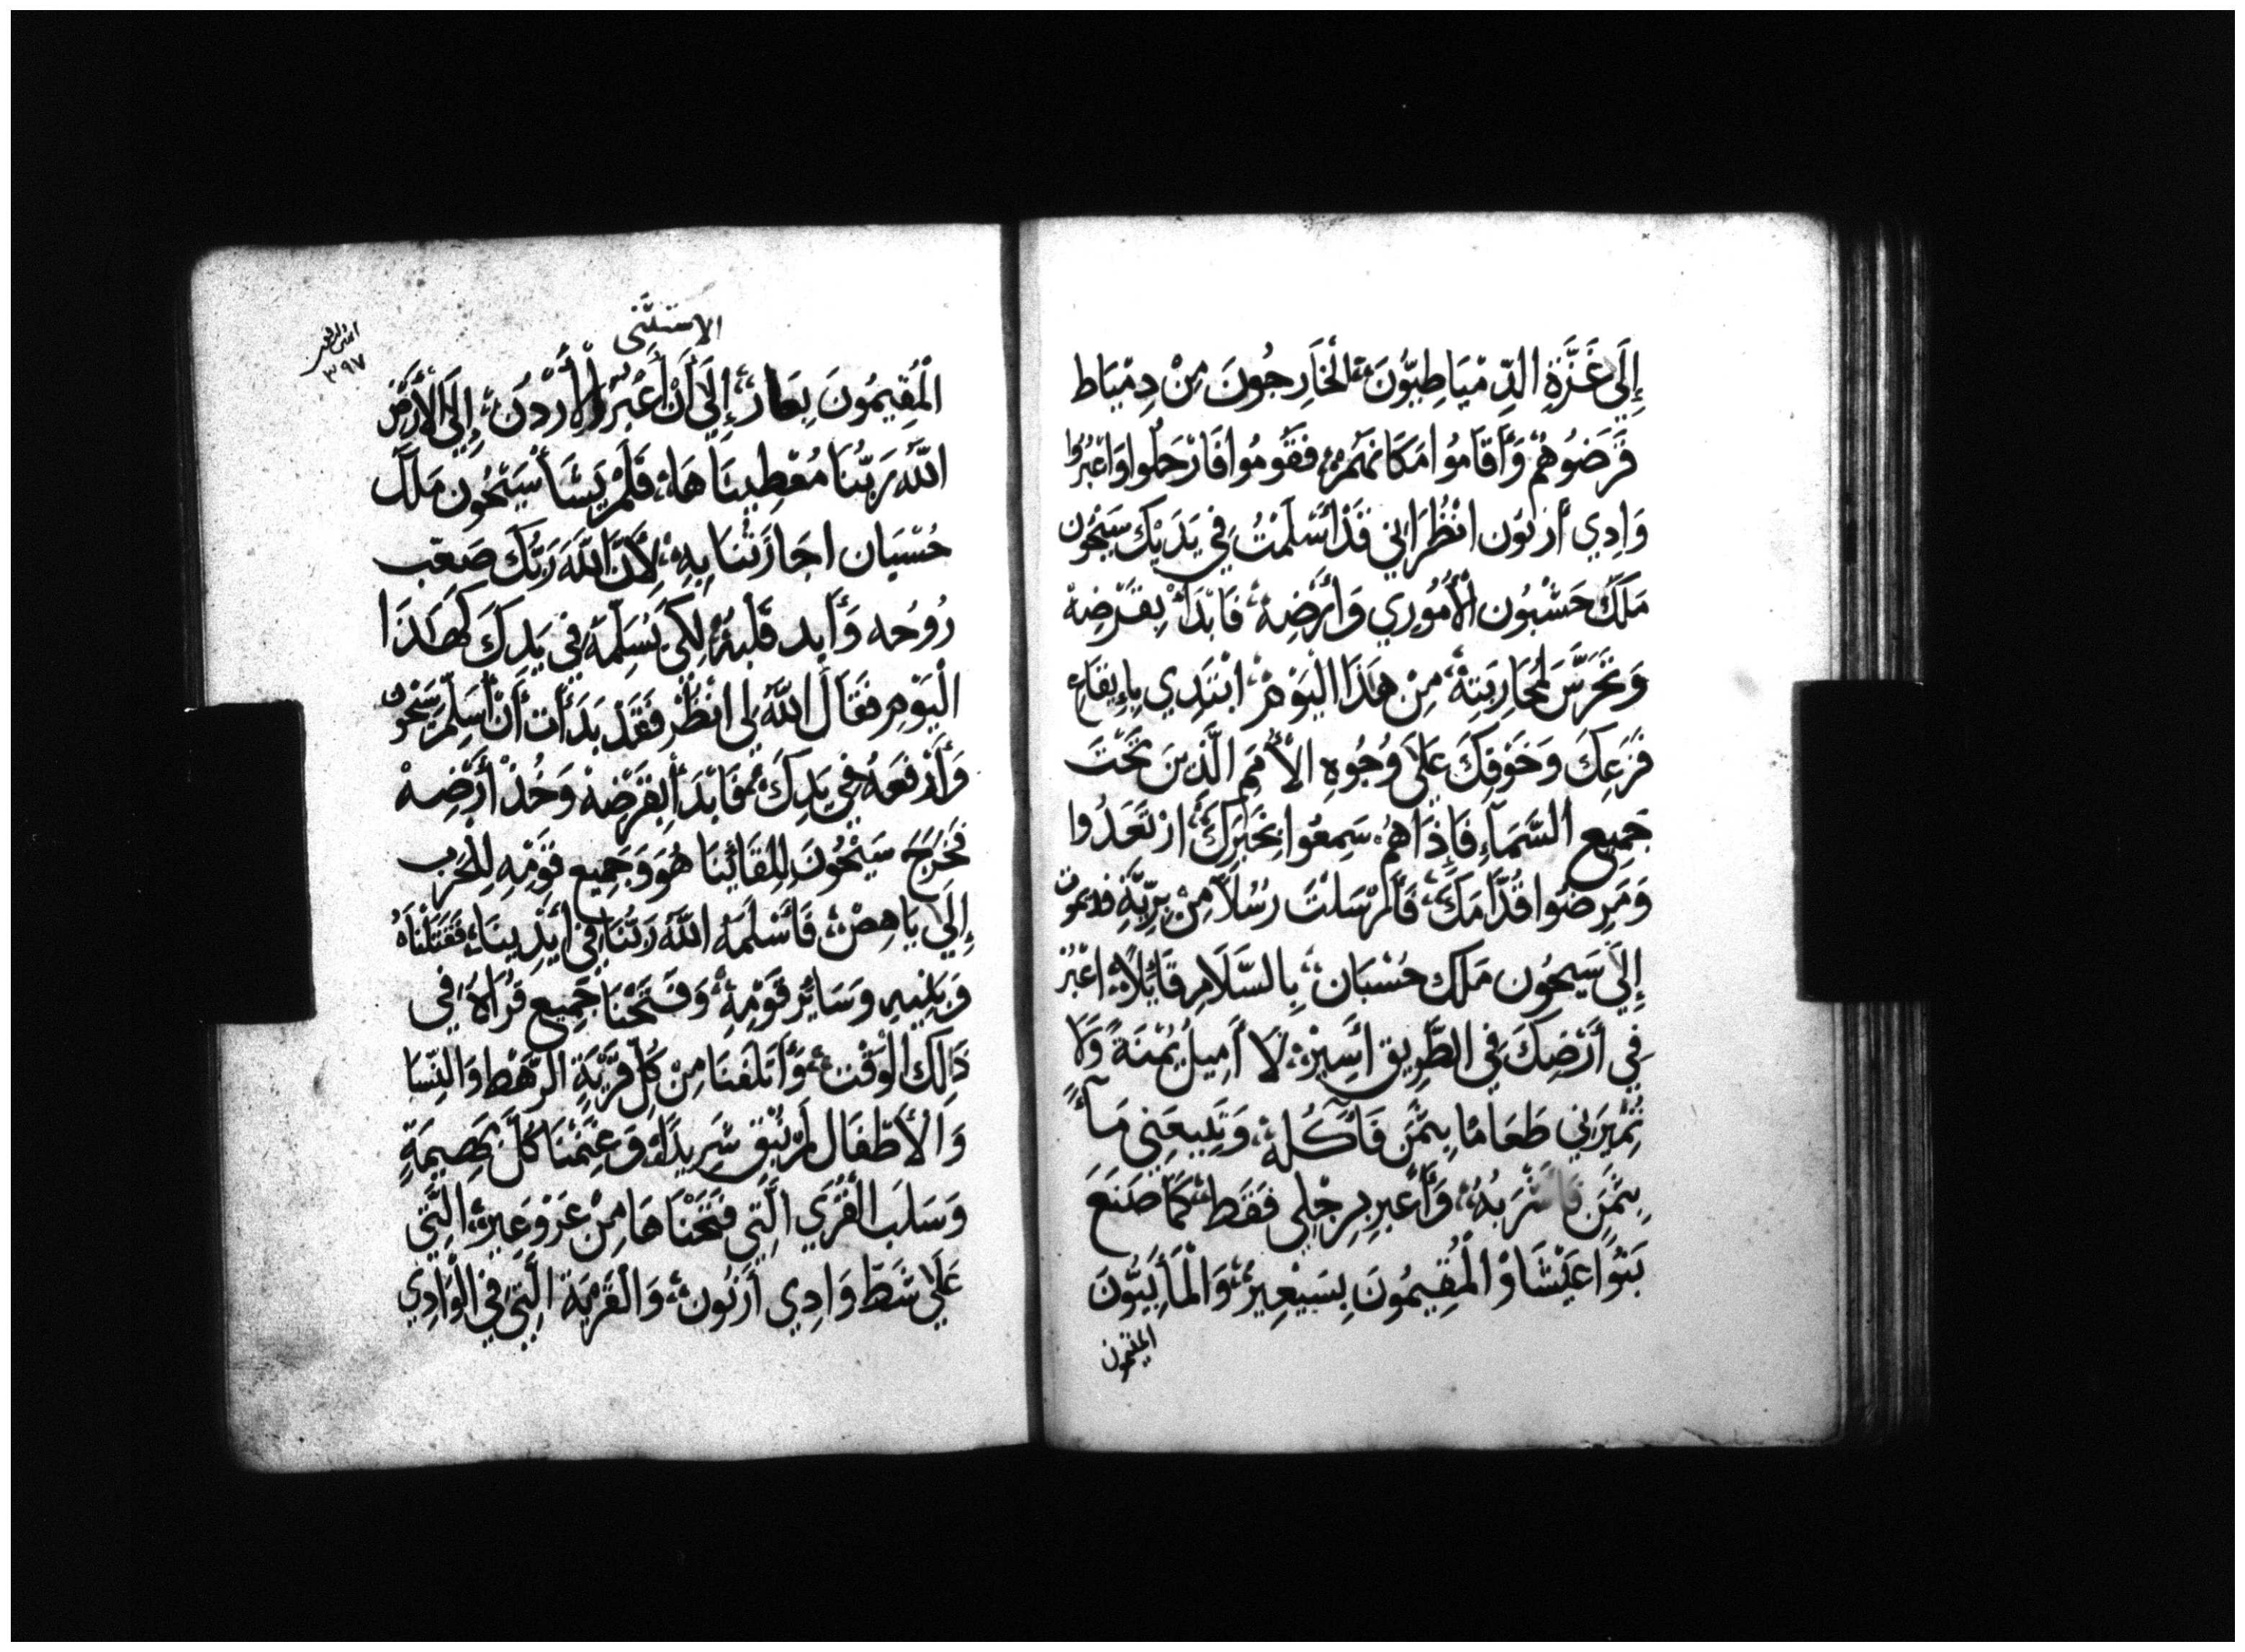 إِلَى غَزَّةِ الدِّمْيَاطِيُّونَ، الْخَارِجُونَ مِنْ دِمْيَاط
قَرَضُوهُمْ وَأَقَامُوا مَكَانَهُمْ، فَقُومُوا فَارْحَلُوا وَاعْبُرُوا
وَادِي أَرْنُون انْظُرْ اِنِي قَدْ أَسْلَمْتُ فِي يَدَيْكَ سَيْحُون
مَلِكَ حَشْبُون الْأَمُورِي وَأَرْضِهْ، فَابْدَأْ بِقَرْضِهْ
وَتَحَرَّسَ لِمُحَارِبَتِهْ، مِنْ هَذَا الْيَوْمِ، ابْتَدِي بِإِيقَاعِ
فَزَعِكَ وَخَوْفِكَ عَلَى وُجُوهِ الْأُمَمِ الَّذِينَ تَحْتَ
جَمِيعِ السَّمَاءِ فَإِذَا هُمْ سَمِعُوا بِخَبَرِكَ، ارْتَعَدُوا
وَمَرِضُوا قُدَّامَكَ، فَأَرْسَلْتَ رُسُلاً مِنْ بِرِّيَّةِ قديموت
إِلَى سَيحُون مَلِك حُسْبَان، بِالسَّلَامِ قَائِلاً، اعْبُرْ
فِي أَرْضِكَ فِي الطَّرِيقِ أَسِيرْ، لَا أَمِيلُ يُمْنَةً وَلَا
تُمِيرَنِي طَعَامًا بِثَمَنٍ فَآكُلَهْ، وَتَبِيعَنِي مَآءً
بِثَمَنٍ فَاشْرَبُهُ، وَأَعْبِرِ بِرِجْلِي فَقَط، كَمَا صَنَعَ
بَنُوا عَيْشَاوْ الْمُقِيمُونَ بِسَيْعِيرْ، وَالْمَأَبِيُّونَ
المقيمون
الاستثنى
٣٩٧
الْمُقِيمُونَ بِعَار، إِلَى أَنْ أَعْبُرَ الْأُرْدُنَ، إِلَى الْأَرْضِ
اللَّهُ رَبُّنَا مُعْطِينَاهَا، فَلَمْ يَشَأْ سَيْحُون مَلِكَ
حُسْبَان اجَازَتْنَا بِهِ، لِأَنَّ اللَّهَ رَبُّكَ صَعّب
رُوُحُه وَأَيد قَلْبَهُ، لِكَي يُسَلِّمَهُ فِي يَدِكَ كَهَذَا
الْيَوْمِ فَقَالَ اللَّهُ لِي انْظُرْ فَقَدْ بَدَأْت أَنْ أُسَلِّمَ سَيْحُون
وَأَدْفَعَهُ فِي يَدِكَ، فَابْدَأْ بِقَرْضِهْ وَخُذْ أَرْضِهْ
فَخَرَجَ سَيْحُونَ لِلِقَائِنَا هُوَ وَجَمِيعِ قَوْمِهِ لِلْحَرْبِ
إِلَى يَاهِصْ، فَأَسْلَمَهُ اللَّهُ رَبُّنَا فِي أَيْدِينَا، فَقَتَلْنَاهُ
وَبَنِيهِ وَسَائِرْ قَوْمِهِ، وَفَتَحْنَا جَمِيعِ قُرَاهُ فِي
ذَلِكَ الْوَقْت، وَأَتْلَفْنَا مِنْ كُلِّ قَرْيَةِ الرَّهْطِ وَالنِّسَا
وَالْأَطْفَال لَمْ نُبْقِ شَرِيدًا، وَغَنِمْنَا كُلَّ بَهِيمَةٍ
وَسَلَبَ الْقُرَي الَّتِي فَتَحْنَاهَا مِنْ عَرَوَعِير، الَّتِي
عَلَى شَطِّ وَادِي أَرْنُون، وَالْقَرْيَةَ الَّتِي فِي الْوَادِي